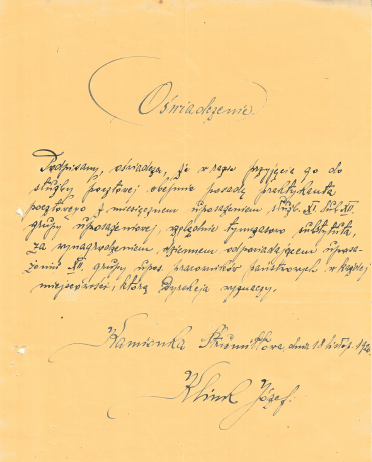 Oświadczenie.
Podpisany, oświadcza, że w razie przyjęcia go do
służby pocztowej obejmie posadę praktykanta
pocztowego z miesięcznem uposażeniem służb. XI. lub XII.
grupy uposażeniowej, względnie tymczasow. substytuta,
za wynagrodzeniem dziennem odpowiadającem uposa-
żeniu XII. grupy upos. pracowników państwowych w każdej
miejscowości, którą Dyrekcja wyznaczy.
Kamionka Strumiłowa, dnia 18 listop.
Klink Józef.